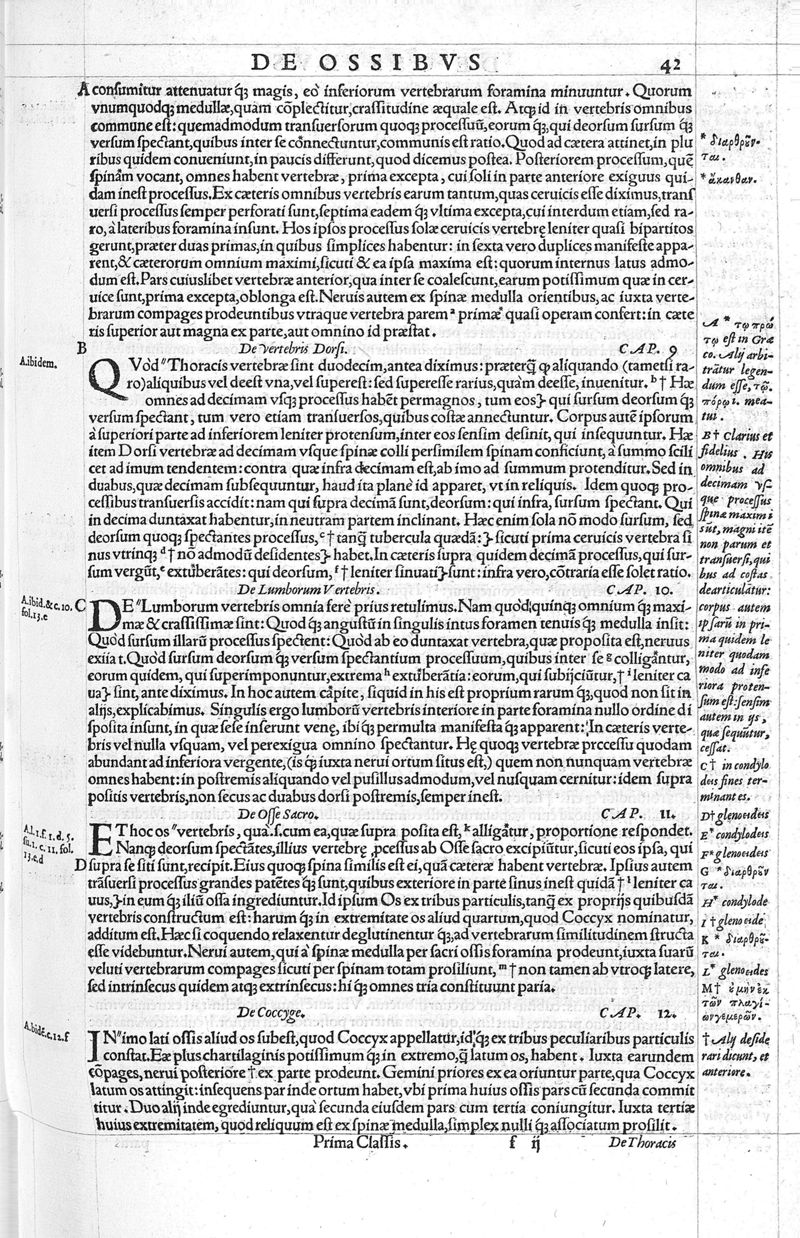 DE OSSIBVS 42
A consumitur attenuatur q́; magis, eò inferiorum vertebrarum foramina minuuntur. Quorum
vnumquodq; medullæ, quàm cõplectitur, crassitudine æquale est. Atq; id in vertebris omnibus
commune est: quemadmodum transuersorum quoq; processuũ, eorum q́;, qui deorsum sursum q́;
versum spectant, quibus inter se connectuntur, communis est ratio. Quod ad cætera attinet, in plu
ribus quidem conueniunt, in paucis differunt, quod dicemus postea. Posteriorem processum, quẽ
spinâm vocant, omnes habent vertebræ, prima excepta, cui soli in parte anteriore exiguus qui-
dam inest processus. Ex cæteris omnibus vertebris earum tantum, quas ceruicis esse diximus, trans
uersi processus semper perforati sunt, septima eadem q́; vltima excepta, cui interdum etiam, sed ra-
ro, à lateribus foramina insunt. Hos ipsos processus solæ ceruicis vertebrę leniter quasi bipartitos
gerunt, præter duas primas, in quibus simplices habentur: in sexta vero duplices manifeste appa-
rent, & cæterorum omnium maximi, sicuti & ea ipsa maxima est: quorum internus latus admo-
dum est. Pars cuiuslibet vertebræ anterior, qua inter se coalescunt, earum potissimum quæ in cer-
uice sunt, prima excepta, oblonga est. Neruis autem ex spinæ medulla orientibus, ac iuxta verte-
brarum compages prodeuntibus vtraque vertebra parem ª primæ quasi operam confert: in cæte
ris superior aut magna ex parte, aut omnino id præstat.
B De Vertebris Dorsi. CAP. 9
QVòd "Thoracis vertebræ sint duodecim, antea diximus: præterq̃ q̃ aliquando (tametsi ra-
ro) aliquibus vel deest vna, vel superest: sed superesse rarius, quàm deesse, inuenitur. ᵇ † Hæ
omnes ad decimam vsq; processus habẽt permagnos, tum eos} qui sursum deorsum q́;
versum spectant, tum vero etiam transuersos, quibus costæ annectuntur. Corpus autẽ ipsorum
à superiori parte ad inferiorem leniter protensum, inter eos sensim desinit, qui insequuntur. Hæ
item Dorsi vertebræ ad decimam vsque spinæ colli persimilem spinam conficiunt, à summo scili
cet ad imum tendentem: contra quæ infra decimam est, ab imo ad summum protenditur. Sed in
duabus, quæ decimam subsequuntur, haud ita planè id apparet, vt in reliquis. Idem quoq; pro-
cessibus transuersis accidit: nam qui supra decimã sunt, deorsum: qui infra, sursum spectant. Qui
in decima duntaxat habentur, in neutram partem inclinant. Hæc enim sola nõ modo sursum, sed
deorsum quoq; spectantes processus, ᶜ † tanq̃ tubercula quædã: } sicuti prima ceruicis vertebra si
nus vtrinq; ᵈ † nõ admodũ desidentes} habet. In cæteris supra quidem decimã processus, qui sur-
sum vergũt, ᵉ extuberãtes: qui deorsum, ᶠ † leniter sinuati} sunt: infra vero, cõtraria esse solet ratio.
De Lumborum Vertebris. CAP. 10.
C DE "Lumborum vertebris omnia ferè prius retulimus. Nam quòd quinq; omnium q́; maxi-
mæ & crassissimæ sint: Quòd q́; angustũ in singulis intus foramen tenuis q́; medulla insit:
Quòd sursum illarũ processus spectent: Quòd ab eo duntaxat vertebra, quæ proposita est, neruus
exiiat. Quòd sursum deorsum q́; versum spectantium processuum, quibus inter se ᵍ colligãtur,
eorum quidem, qui superimponuntur, extrema ʰ extuberãtia: eorum, qui subijciũtur, † ⁱ leniter ca
ua} sint, ante diximus. In hoc autem cápite, siquid in his est proprium rarum q́;, quod non sit in
alijs, explicabimus. Singulis ergo lumborũ vertebris interiore in parte foramina nullo ordine di
sposita insunt, in quæ sese inserunt venę, ibi q́; permulta manifesta q́; apparent: In cæteris verte-
bris vel nulla vsquam, vel perexigua omnino spectantur. Hę quoq; vertebræ prccessu quodam
abundant ad inferiora vergente, (is q́; iuxta nerui ortum situs est,) quem non nunquam vertebræ
omnes habent: in postremis aliquando vel pusillus admodum, vel nusquam cernitur: idem supra
positis vertebris, non secus ac duabus dorsi postremis, semper inest.
De Osse Sacro. CAP. 11.
ET hoc os "vertebris, qua. s. cum ea, quæ supra posita est, ᵏ alligãtur, proportione respondet.
Nanq; deorsum spectãtes, illius vertebrę ꝓcessus ab Osse sacro excipiũtur, sicuti eos ipsa, qui
D supra se siti sunt, recipit. Eius quoq; spina similis est ei, quã cæteræ habent vertebræ. Ipsius autem
trãsuersi processus grandes patẽtes q́; sunt, quibus exteriore in parte sinus inest quidã † ˡ leniter ca
uus, } in eum q́; iliũ ossa ingrediuntur. Id ipsum Os ex tribus particulis, tanq̃ ex proprijs quibusdã
vertebris constructum est: harum q́; in extremitate os aliud quartum, quod Coccyx nominatur,
additum est. Hæc si coquendo relaxentur deglutinentur q́;, ad vertebrarum similitudinem structa
esse videbuntur. Nerui autem, qui à spinæ medulla per sacri ossis foramina prodeunt, iuxta suarũ
veluti vertebrarum compages sicuti per spinam totam prosiliunt, ᵐ † non tamen ab vtroq; latere,
sed intrinsecus quidem atq; extrinsecus: hi q́; omnes tria constituunt paria.
De Coccyge. CAP. 12.
IN "imo lati ossis aliud os subest, quod Coccyx appellatur, id q́; ex tribus peculiaribus particulis
constat. Eæ plus chartilaginis potissimum q́; in extremo, q̃ latum os, habent. Iuxta earundem
cõpages, nerui posteriore † ex parte prodeunt. Gemini priores ex ea oriuntur parte, qua Coccyx
latum os attingit: insequens par inde ortum habet, vbi prima huius ossis pars cũ secunda commit
titur. Duo alij inde egrediuntur, quà secunda eiusdem pars cum tertia coniungitur. Iuxta tertiæ
huius extremitatem, quod reliquum est ex spinæ medulla, simplex nulli q́; associatum prosilit.
Prima Classis. f ij De Thoracis
A. ibidem.
A. ibid. & c. 10.
fol. 13. e
A. l. 1. f. 1. d. 5.
13. c. d
A. ibid. c. 12. f
* διαρθροῦν-
ται.
* ἄκανθαν.
A * τῳ πρώ
τῳ est in Græ
co. Alij arbi-
trãtur legen-
dum esse, τῷ
πόρῳ ι. mea-
tui.
B † clarius et
fidelius. His
omnibus ad
decimam vs
que processus
spinæ maximi
sũt, magni itẽ
non parum et
trãsuersi, qui
bus ad costas
dearticulãtur:
corpus autem
ipsarũ in pri-
ma quidem le
niter quodam
modo ad infe
riora proten-
sum est: sensim
autem in ijs,
quæ sequũtur,
cessat.
C † in condylo
deis fines ter-
minantes.
D † glenoeideis
E * condylodeis
F * glenoeideis
G * διαρθροῦν
ται.
H * condylode
I † glenoeide
K * διαρθροῦν-
ται.
L * glenoeides
M † ἐμὴν ἐκ
τῶν πλαγί-
ων γε μερῶν.
† Alij deside
rari dicunt, et
anteriore.